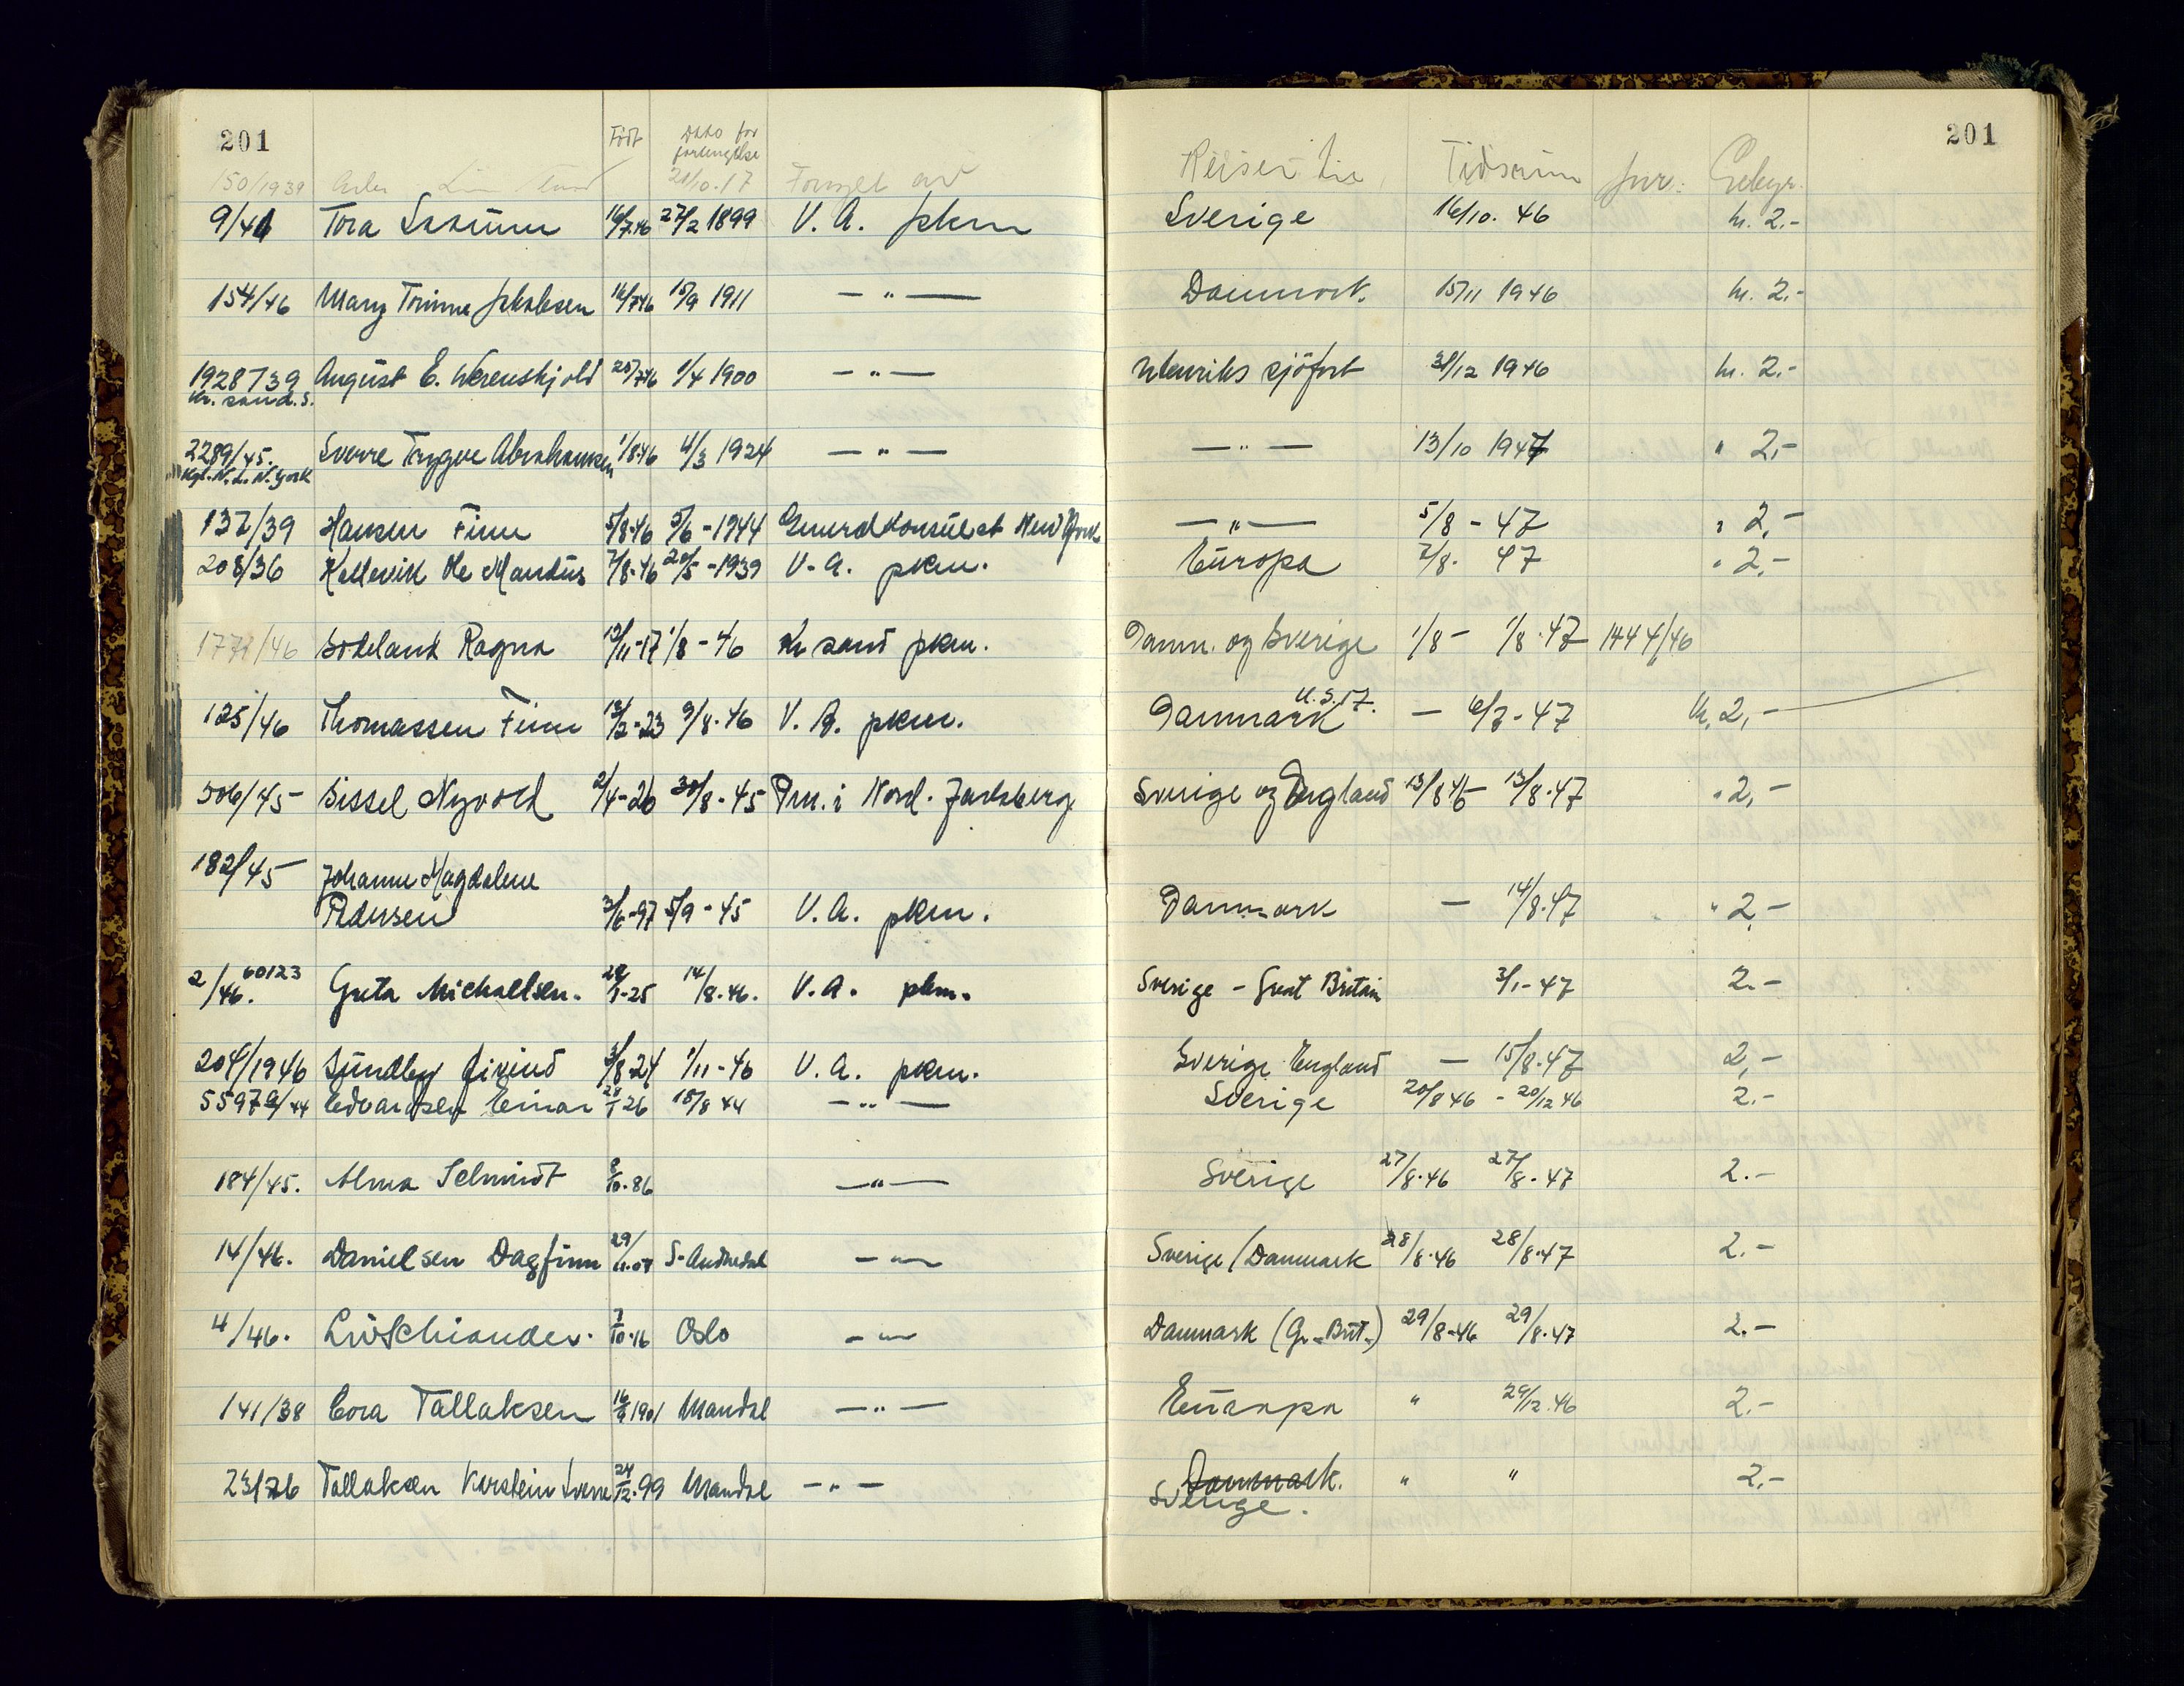 201 201
Født Dato for forlengelse Reiser til Tidsrum Jnr: Gebyr.
150/1939 21/10.17
9/41 Tora 16/7.46 27/2 1899 V. A. pkm Sverige 16/10. 46 kr. 2.-
154/46 Mary Jakobsen 16/7 46 15/9 1911 — " — Danmark. 15/11 1946 kr. 2.-
1928/39 August E. Werenskjold 25/7 46 1/4 1900 — " — Utenriks sjöfart 31/12 1946 kr. 2.-
Kr. sand. S.
2289/45. Sverre Trygve Abrahamsen 1/8 46 4/3 1924 — " — — " — 13/10 1947 " 2,-
Kgl. N. L. N. York
137/39 Hansen Finn 5/8-46 5/6 - 1944 Generalkonsulat New York — " — 5/8 - 47 " 2,-
208/36 Kallevik Ole Mandius 7/8-46 20/5 - 1939 V. A. pkm. Europa 7/8. 47 " 2.-
177 /46 Bodeland Ragna 12/11-17 1/8 - 46 Kr sand pkm. Danm. og Sverige 1/8 - 1/8.47 1444/46
U.S.A.
125/46 Thomassen Finn 12/2-23 9/8.46 V. A. pkm. Danmark — 6/7-47 kr. 2,-
506/45 Sissel Nyvold 2/4-26 30/8.45 Pm. i Nord. Jarlsberg Sverige og England 13/8 46 - 13/8.47 " 2,-
182/45 Johanne Magdalene
Pedersen 3/6-97 5/9-45 V. A. pkm. Danmark — 14/8.47 " 2,-
2/46. 60123 Greta Michaelsen. 28/1-25 14/8.46. V. A. pkm. Sverige - Great Britain 3/1-47 2.-
204/1946 Sundby Eivind 3/8.24 1/11-46 V. A. pkm. Sverige England — 15/8.47 2,-
55972/44 Edvardsen Einar 28/1 26 18/8 44 — " — Sverige 20/8 46 - 20/12 46 2.-
184/45. Alma Schmidt 8/10.86 — " — Sverige 27/8.46 27/8.47 2.-
14/46. Danielsen Dagfinn 29/11.07 S. Audnedal — " — Sverige / Danmark 28/8.46 28/8.47 2.-
4/46. Liv Schiander. 7/10.16 Oslo — " — Danmark (Gr. Brit.) 29/8.46 29/8.47 2.-
141/38 Cora Tallaksen 16/9 1901 Mandal — " — Euaropa " 29/12.46 2.-
23/26 Tallaksen Karstein Sverre 24/12.99 Mandal — " — Danmark. " " 2.-
Sverige.